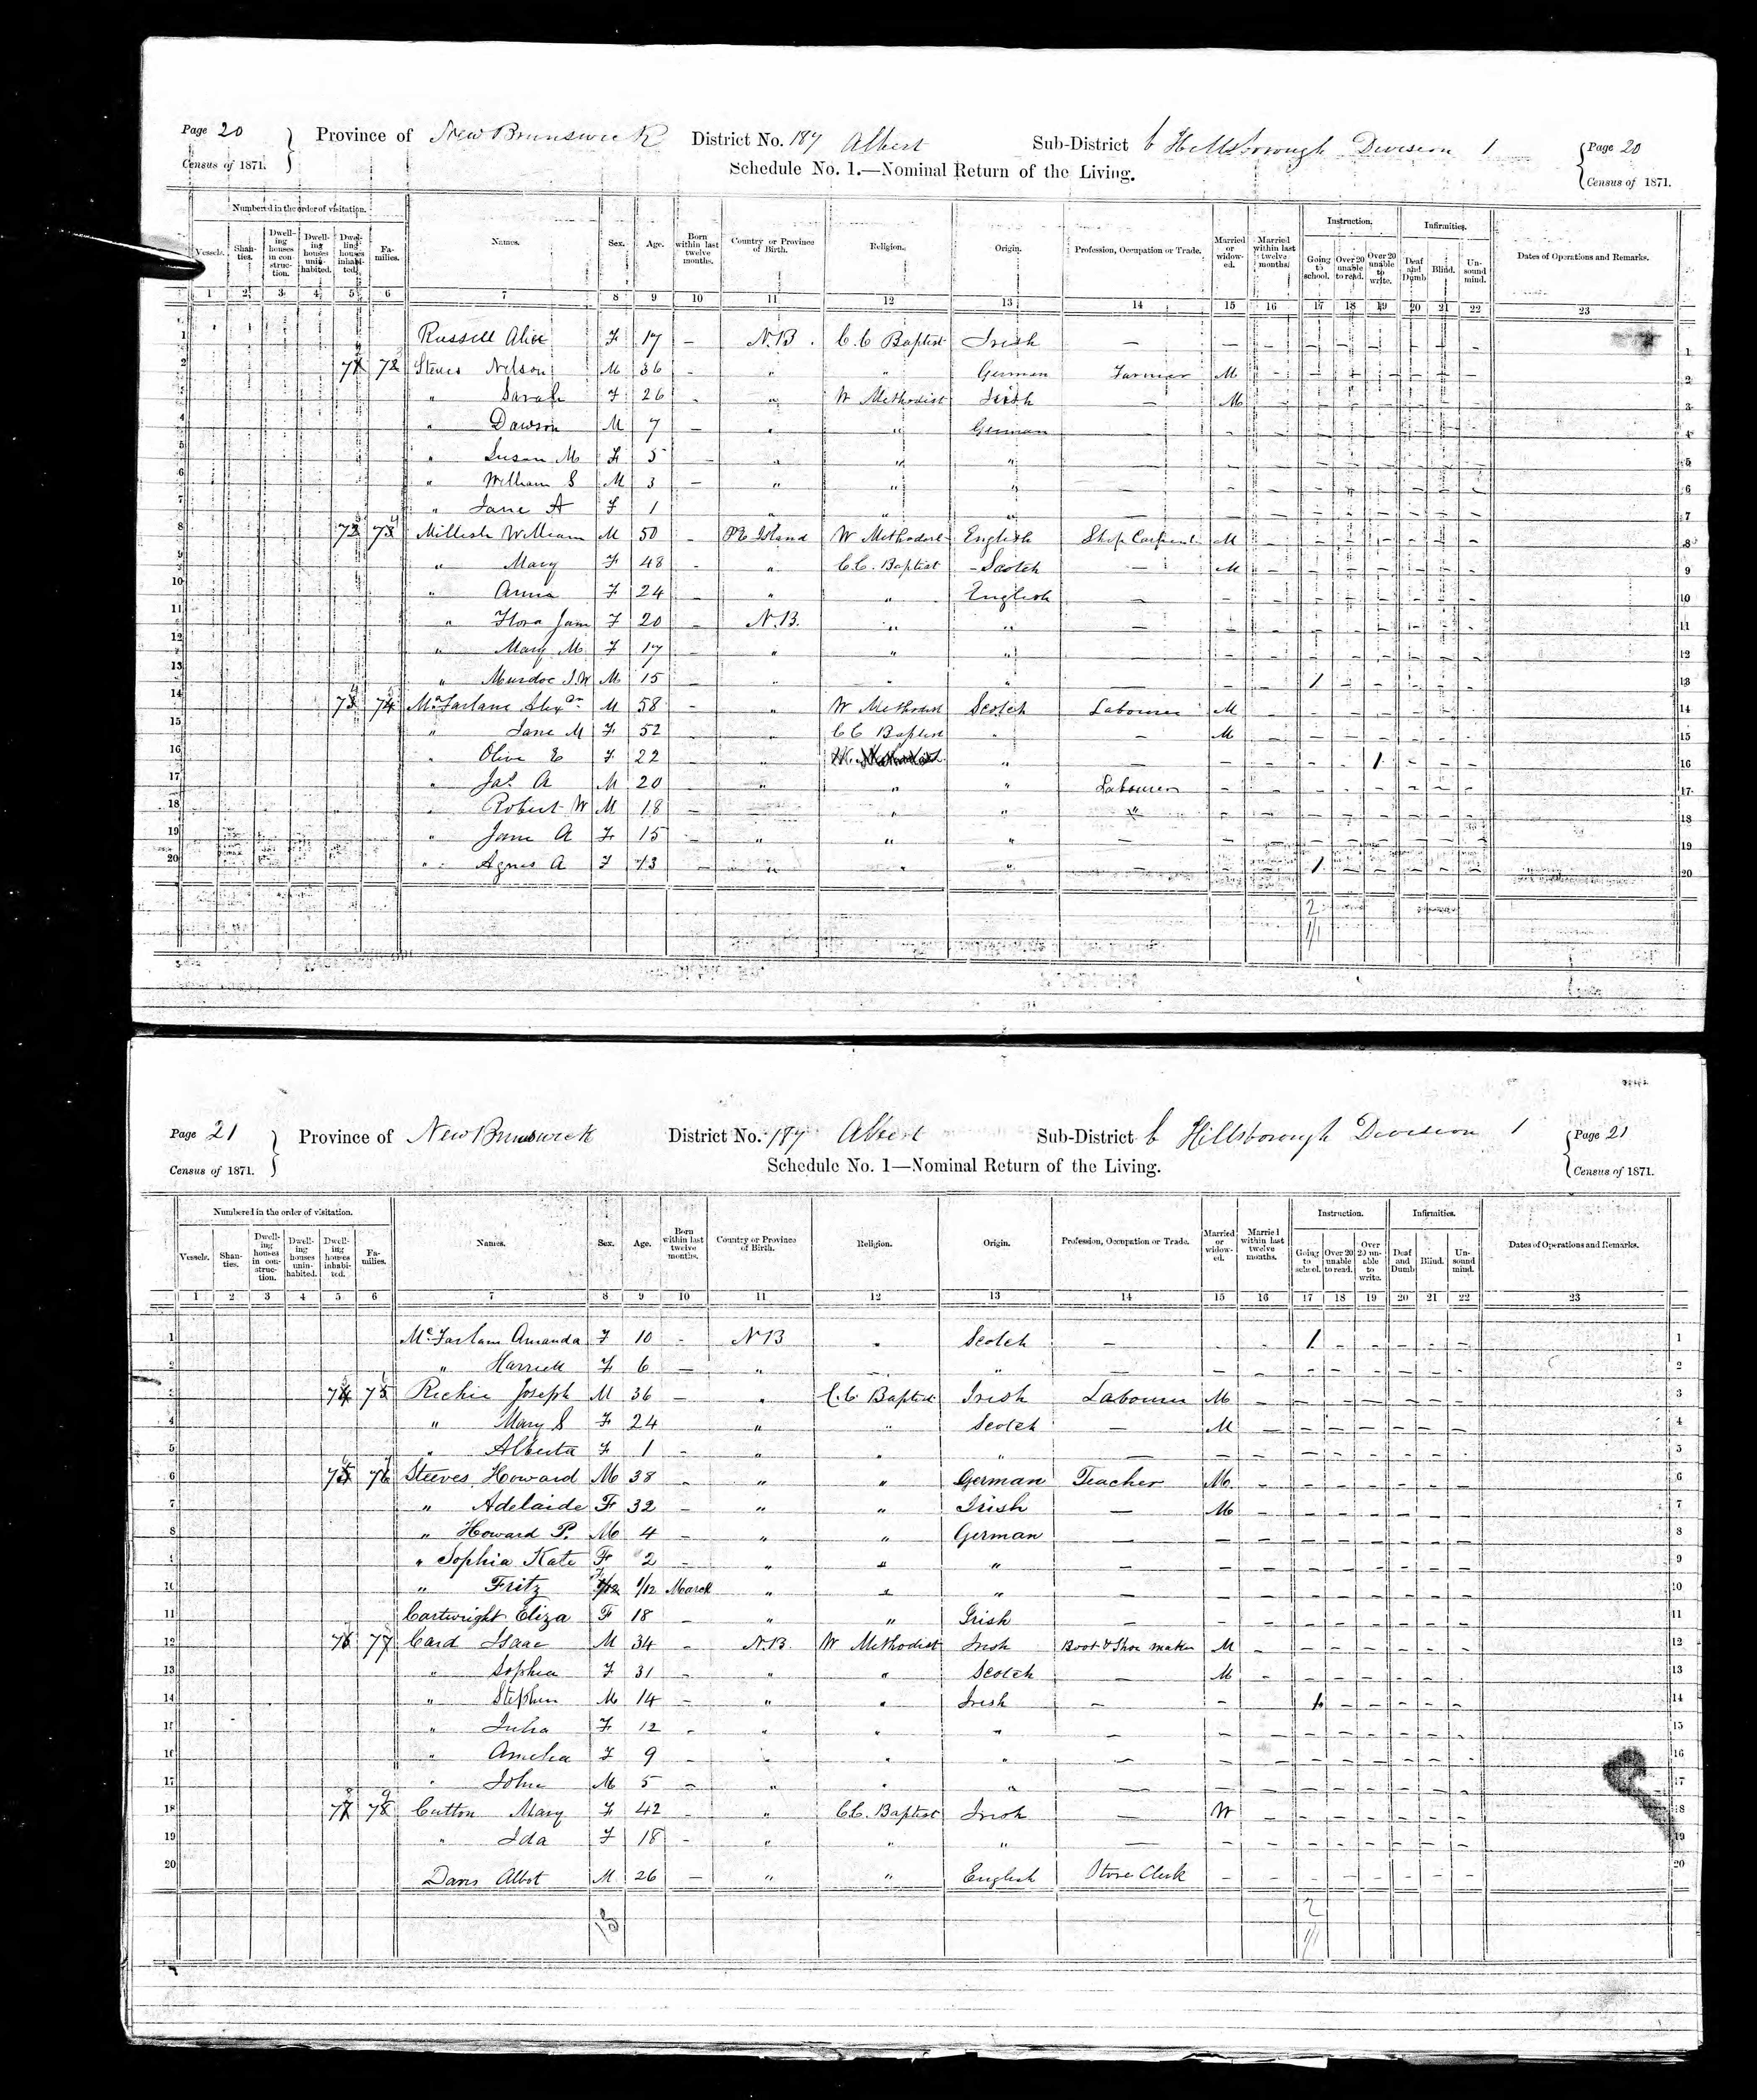 Page 20 Province of New Brunswick District No. 187 Albert Sub-District b Hillsborough Division 1 Page 20
Census of 1871. Schedule No. 1.—Nominal Return of the Living. Census of 1871.
Numbered in the order of visitation. Instruction. Infirmities.
Vessels. Shanties. Dwelling houses in construction. Dwelling houses uninhabited. Dwelling houses inhabited. Families. Names. Sex. Age. Born within last twelve months. Country or Province of Birth. Religion. Origin. Profession, Occupation or Trade. Married or widowed. Married within last twelve months. Going to school. Over 20 unable to read. Over 20 unable to write. Deaf and Dumb Blind. Unsound mind. Dates of Operations and Remarks.
1 2 3 4 5 6 7 8 9 10 11 12 13 14 15 16 17 18 19 20 21 22 23
1 Russell Alice F 17 — N.B. C.C Baptist Irish — 1
2 71 72 Steves Nelson M 36 - " " German Farmer M 2
3 " Sarah F 26 - " W Methodist Irish — M 3
4 " Dawson M 7 — " " German — 4
5 " Susan M F 5 — " " " — 5
6 " William S M 3 — " " " — 6
7 " Jane A F 1 " " " — 7
8 72 73 Millish William M 50 - PE Island W Methodist English Ship Carpent M 8
9 " Mary F 48 - " C.C. Baptist Scotch — M 9
10 " Anna F 24 - " " English — 10
11 " Flora Jane F 20 - N.B. " " — 11
12 " Mary M F 17 - " " " — 12
13 " Murdoc J.W M 15 - " " " — 1 13
14 73 74 McFarlane Alexr M 58 - " W Methodist Scotch Labourer M 14
15 " Jane M F 52 " C C Baptist " - M 15
16 " Olive E F 22 " " — 1 16
17 " Jas. A M 20 - " " " Labourer 17
18 " Robert W M 18 — " " " " 18
19 " Jane A F 15 - " " " — 19
20 " Agnes A F 13 - " " " — 1 20
2
Page 21 Province of New Brunswick District No. 187 Albert Sub-District b Hillsborough Division 1 Page 21
Census of 1871. Schedule No. 1—Nominal Return of the Living. Census of 1871.
Numbered in the order of visitation. Instruction. Infirmities.
Vessels. Shanties. Dwelling houses in construction. Dwelling houses uninhabited. Dwelling houses inhabited. Families. Names. Sex. Age. Born within last twelve months. Country or Province of Birth. Religion. Origin. Profession, Occupation or Trade. Married or widowed. Married within last twelve months. Going to school. Over 20 unable to read. Over 20 unable to write. Deaf and Dumb Blind. Unsound mind. Dates of Operations and Remarks.
1 2 3 4 5 6 7 8 9 10 11 12 13 14 15 16 17 18 19 20 21 22 23
1 McFarlam Amanda F 10 - N B " Scotch — 1 1
2 " Harriett F 6 — " " " — 2
3 74 75 Richie Joseph M 36 — " C.C Baptist Irish Labourer M 3
4 " Mary S F 24 " " Scotch — M 4
5 " Alberta F 1 - " " " — 5
6 75 76 Steeves Howard M 38 - " " German Teacher M 6
7 " Adelaide F 32 - " " Irish — M 7
8 " Howard P. M 4 - " " German — 8
9 " Sophia Kate F 2 - " " " — 9
10 " Fritz 1/12 March " " " — 10
11 Cartwright Eliza F 18 - " " Irish — 11
12 76 77 Card Isaac M 34 - N.B. W Methodist Irish Boot & Shoe maker M 12
13 " Sophia F 31 - " " Scotch — M 13
14 " Stephen M 14 - " " Irish — 1 14
15 " Julia F 12 - " " " — 15
16 " Amelia F 9 - " " " — 16
17 " John M 5 - " " " — 17
18 77 78 Cutton Mary F 42 - " C.C. Baptist Irish — W 18
19 " Ida F 18 - " " " — 19
20 Daves Albot M 26 — " " English Store Clerk 20
2